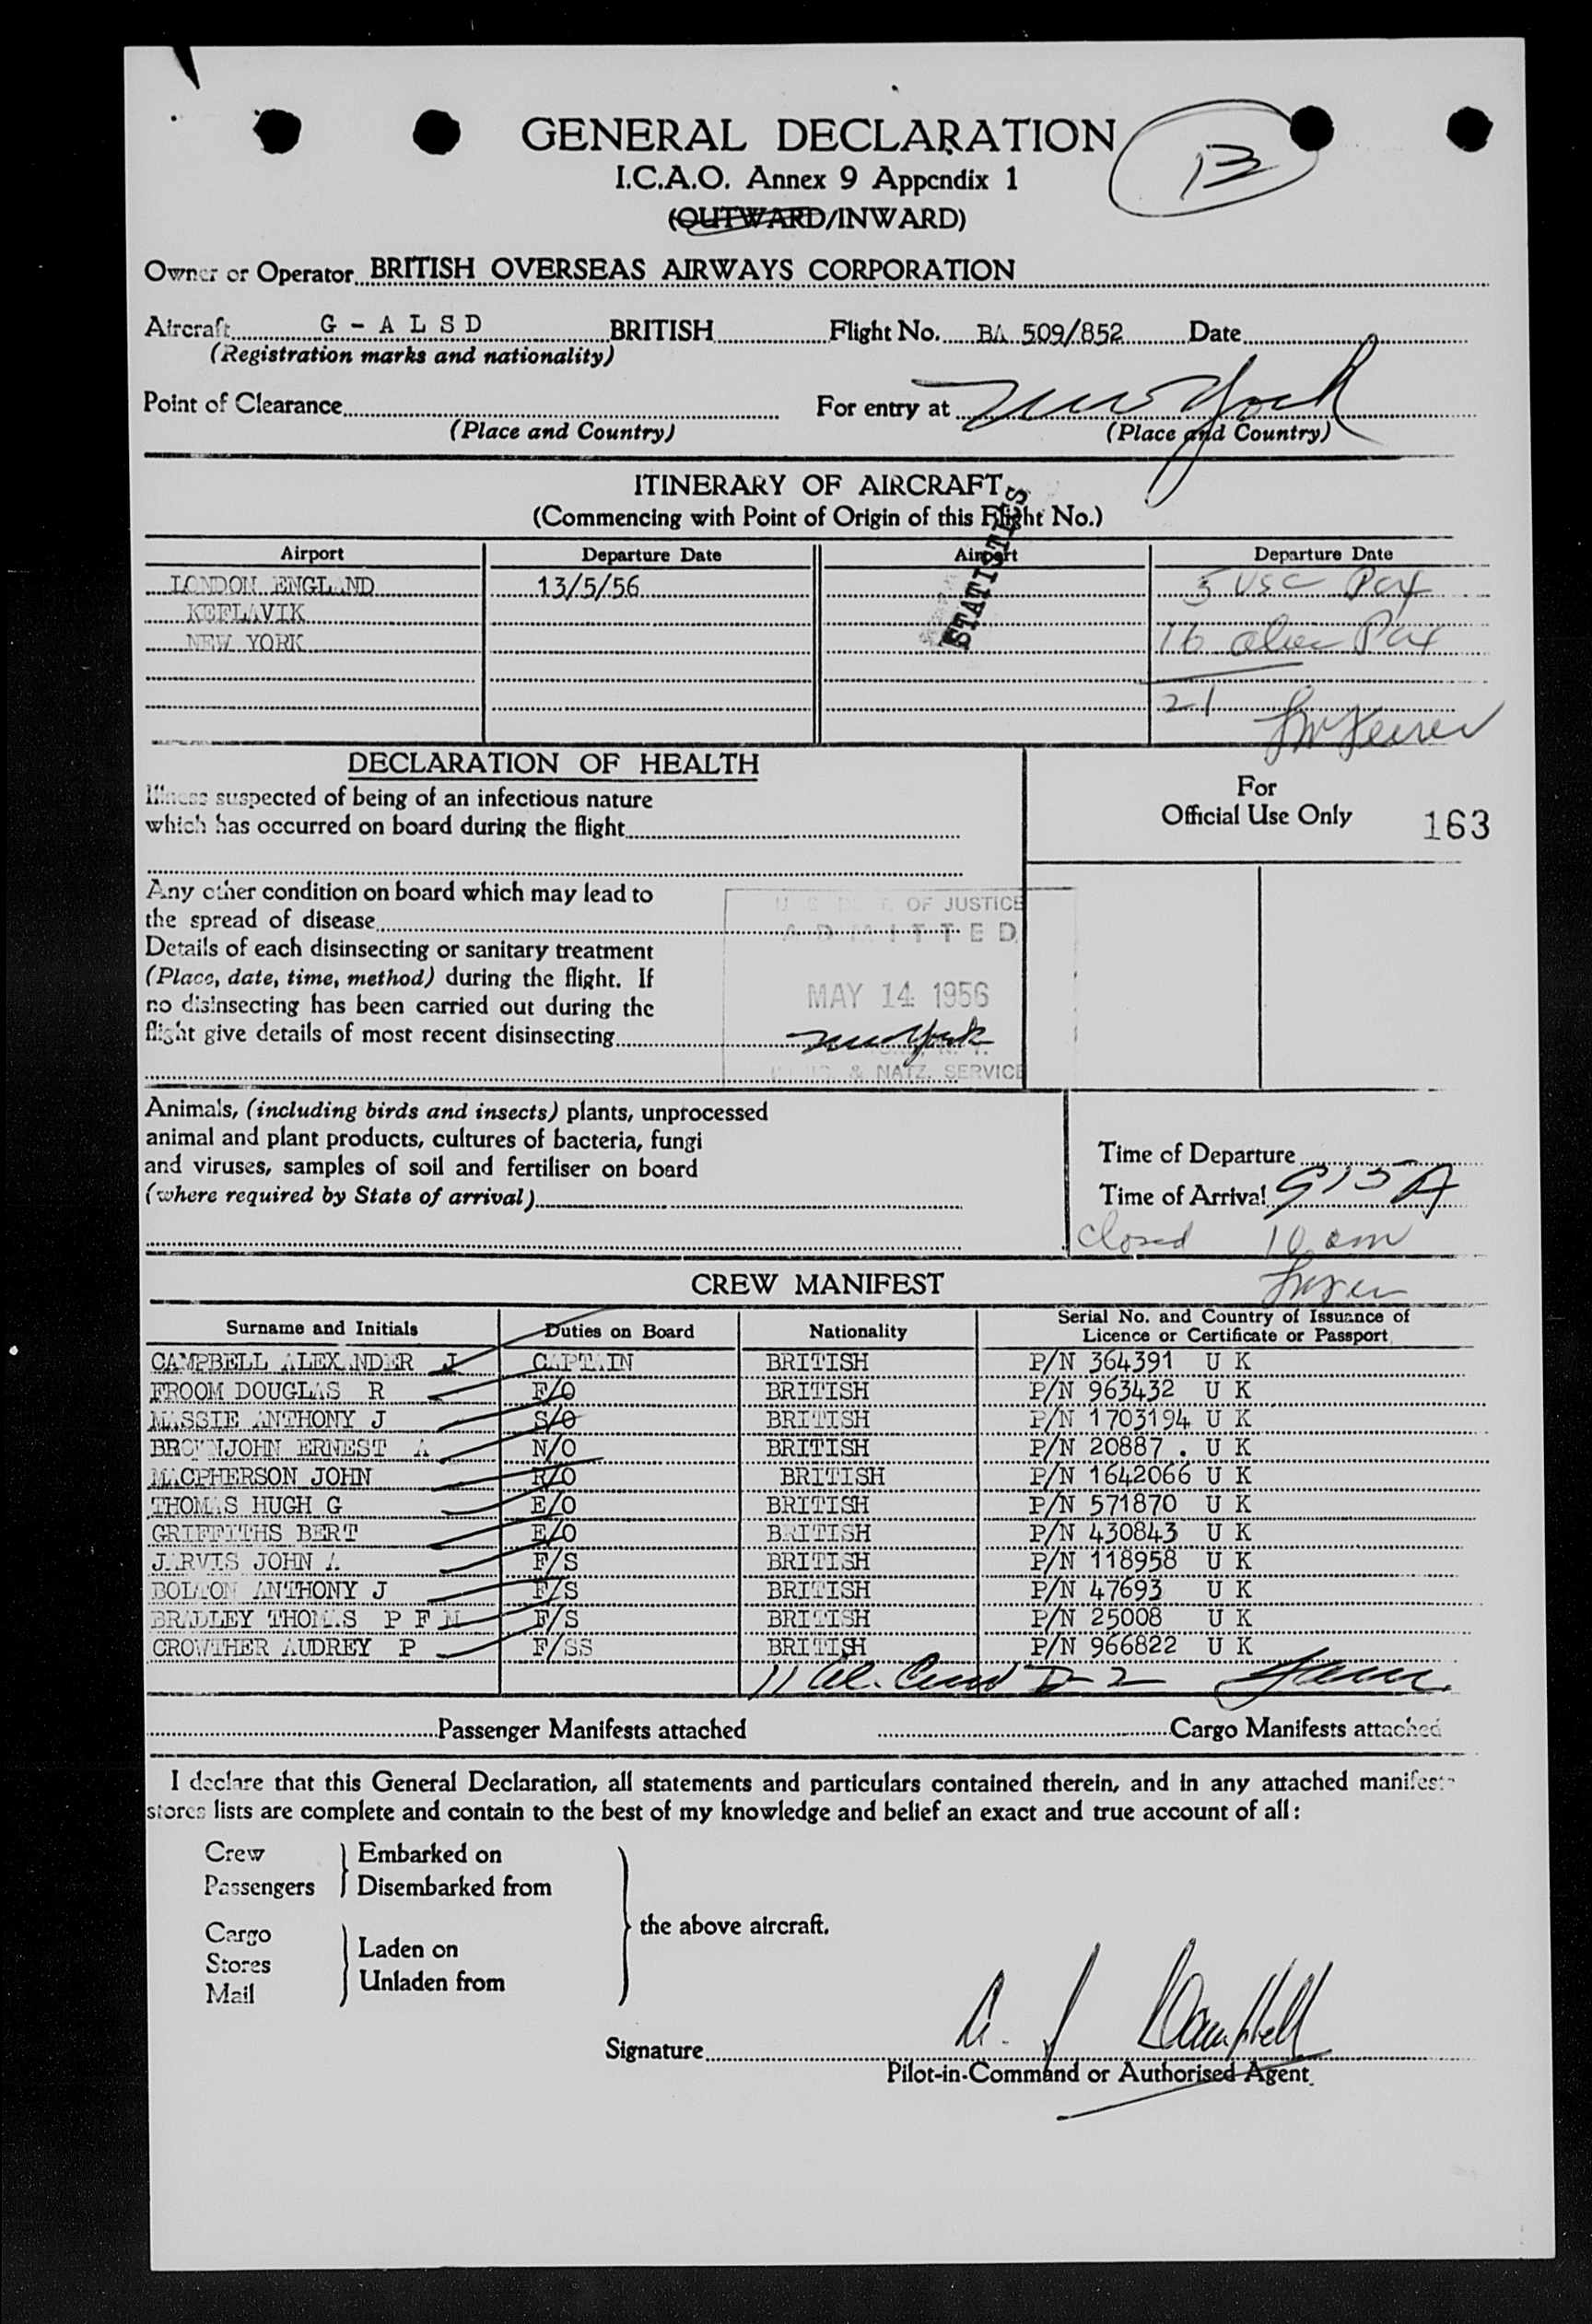 GENERAL DECLARATION
13
I.C.A.O. Annex 9 Appendix 1
(OUTWARD/INWARD)
Owner or Operator BRITISH OVERSEAS AIRWAYS CORPORATION
Aircraft G - A L S D BRITISH Flight No. BA 509/852 Date
(Registration marks and nationality)
Point of Clearance For entry at New York
(Place and Country) (Place and Country)
ITINERARY OF AIRCRAFT
(Commencing with Point of Origin of this Flight No.)
STATISTICS
Airport Departure Date Airport Departure Date
LONDON ENGLAND 13/5/56 5 USC Pax
KEFLAVIK
NEW YORK 16 alien Pax
21
DECLARATION OF HEALTH
Illness suspected of being of an infectious nature
which has occurred on board during the flight
For
Official Use Only 163
Any other condition on board which may lead to
the spread of disease
Details of each disinsecting or sanitary treatment
(Place, date, time, method) during the flight. If
no disinsecting has been carried out during the
flight give details of most recent disinsecting
U S DEPT. OF JUSTICE
ADMITTED
MAY 14 1956
New York
& NATZ. SERVICE
Animals, (including birds and insects) plants, unprocessed
animal and plant products, cultures of bacteria, fungi
and viruses, samples of soil and fertiliser on board
(where required by State of arrival)
Time of Departure
Time of Arrival 915 A
Closed 10 am
CREW MANIFEST
Surname and Initials Duties on Board Nationality Serial No. and Country of Issuance of Licence or Certificate or Passport
CAMPBELL ALEXANDER J CAPTAIN BRITISH P/N 364391 U K
FROOM DOUGLAS R F/O BRITISH P/N 963432 U K
MASSIE ANTHONY J S/O BRITISH P/N 1703194 U K
BROWNJOHN ERNEST A N/O BRITISH P/N 20887 . U K
MACPHERSON JOHN R/O BRITISH P/N 1642066 U K
THOMAS HUGH G E/O BRITISH P/N 571870 U K
GRIFFITHS BERT E/O BRITISH P/N 430843 U K
JARVIS JOHN A F/S BRITISH P/N 118958 U K
BOLTON ANTHONY J F/S BRITISH P/N 47693 U K
BRADLEY THOMAS P F M F/S BRITISH P/N 25008 U K
CROWTHER AUDREY P F/SS BRITISH P/N 966822 U K
11 al. Crew D-2
Passenger Manifests attached Cargo Manifests attached
I declare that this General Declaration, all statements and particulars contained therein, and in any attached manifest
stores lists are complete and contain to the best of my knowledge and belief an exact and true account of all:
Crew
Passengers
Embarked on
Disembarked from
Cargo
Stores
Mail
Laden on
Unladen from
the above aircraft.
Signature A. J. Campbell
Pilot-in-Command or Authorised Agent.